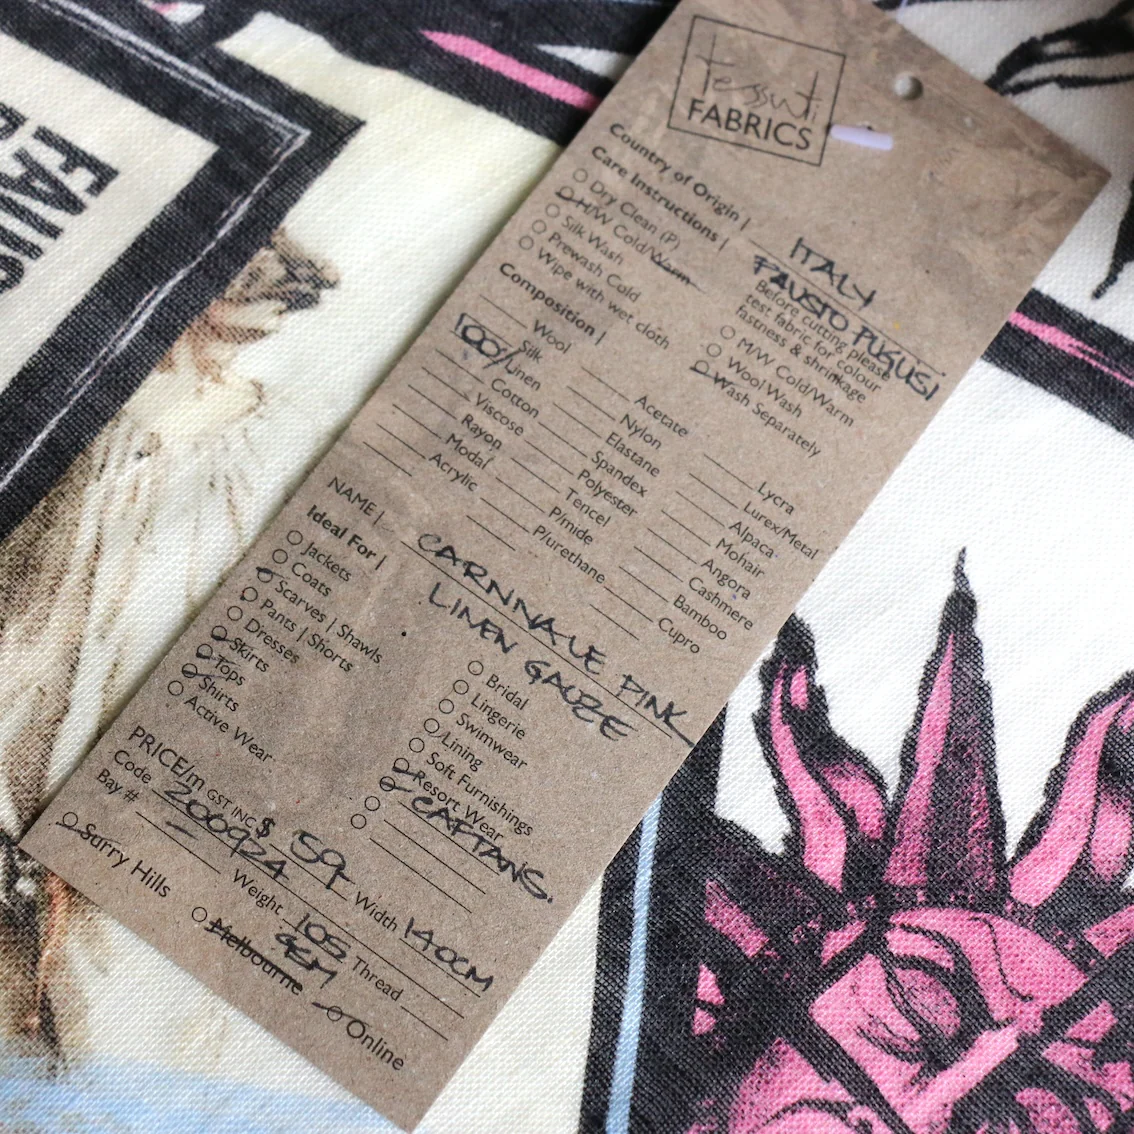 tessuti
FABRICS
Country of Origin | ITALY
Care Instructions | FAUSTO PUGUSI
Dry Clean (P)
H/W Cold/Warm
Silk Wash
Prewash Cold
Wipe with wet cloth
Before cutting please
test fabric for colour
fastness & shrinkage
M/W Cold/Warm
Wool Wash
Wash Separately
Composition |
Wool
Silk
100% Linen
Cotton
Viscose
Rayon
Modal
Acrylic
Acetate
Nylon
Elastane
Spandex
Polyester
Tencel
P/mide
P/urethane
Lycra
Lurex/Metal
Alpaca
Mohair
Angora
Cashmere
Bamboo
Cupro
NAME | CARNIVALE PINK
LINEN GAUZE
Ideal For |
Jackets
Coats
Scarves | Shawls
Pants | Shorts
Dresses
Skirts
Tops
Shirts
Active Wear
Bridal
Lingerie
Swimwear
Lining
Soft Furnishings
Resort Wear
CAFTANS.
PRICE/m GST INC $ 59 Width 140CM
Code 200924 Weight 105 GSM Thread
Bay #
Surry Hills
Melbourne
Online